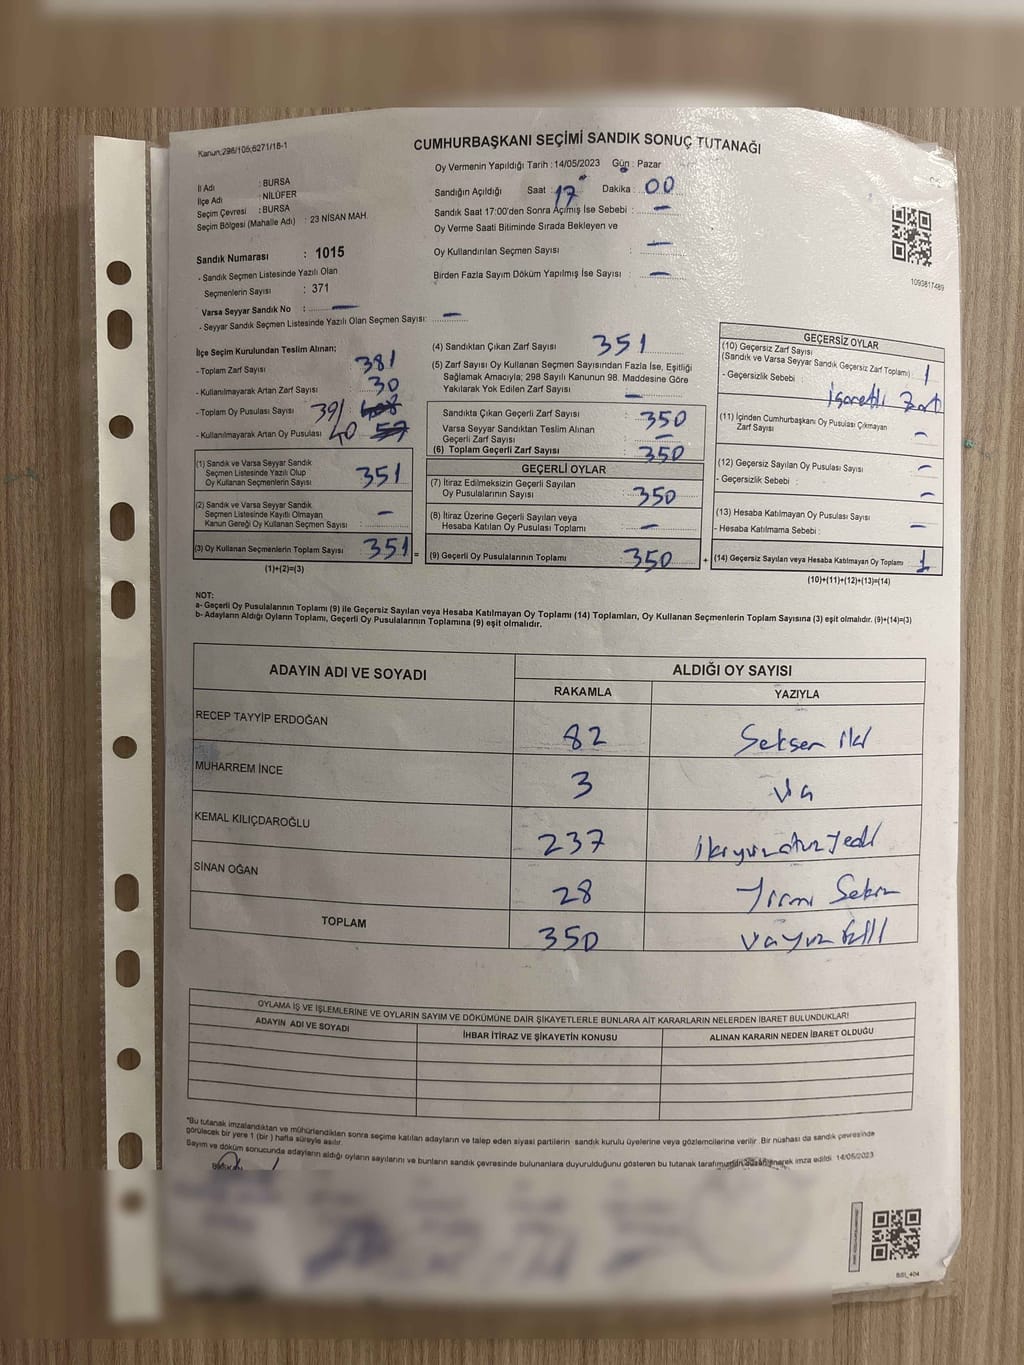 Kanun:298/105;6271/18-1
CUMHURBAŞKANI SEÇİMİ SANDIK SONUÇ TUTANAĞI
Oy Vermenin Yapıldığı Tarih : 14/05/2023 Gün : Pazar
İl Adı : BURSA
İlçe Adı : NİLÜFER
Seçim Çevresi : BURSA
Seçim Bölgesi (Mahalle Adı) : 23 NİSAN MAH.
Sandığın Açıldığı Saat : 17 Dakika : 00
Sandık Saat 17:00'den Sonra Açımış İse Sebebi : -
Oy Verme Saati Bitiminde Sırada Bekleyen ve
Oy Kullandırılan Seçmen Sayısı : -
Birden Fazla Sayım Döküm Yapılmış İse Sayısı : -
1093817489
Sandık Numarası : 1015
- Sandık Seçmen Listesinde Yazılı Olan
Seçmenlerin Sayısı : 371
Varsa Seyyar Sandık No : -
- Seyyar Sandık Seçmen Listesinde Yazılı Olan Seçmen Sayısı: -
İlçe Seçim Kurulundan Teslim Alınan;
- Toplam Zarf Sayısı : 381
- Kullanılmayarak Artan Zarf Sayısı : 30
- Toplam Oy Pusulası Sayısı 391
- Kullanılmayarak Artan Oy Pusulası : 40
(1) Sandık ve Varsa Seyyar Sandık
Seçmen Listesinde Yazılı Olup
Oy Kullanan Seçmenlerin Sayısı : 351
(2) Sandık ve Varsa Seyyar Sandık
Seçmen Listesinde Kayıtlı Olmayan
Kanun Gereği Oy Kullanan Seçmen Sayısı : -
(3) Oy Kullanan Seçmenlerin Toplam Sayısı : 351 =
(1)+(2)=(3)
(4) Sandıktan Çıkan Zarf Sayısı : 351
(5) Zarf Sayısı Oy Kullanan Seçmen Sayısından Fazla İse, Eşitliği
Sağlamak Amacıyla; 298 Sayılı Kanunun 98. Maddesine Göre
Yakılarak Yok Edilen Zarf Sayısı : -
Sandıkta Çıkan Geçerli Zarf Sayısı : 350
Varsa Seyyar Sandıktan Teslim Alınan
Geçerli Zarf Sayısı : -
(6) Toplam Geçerli Zarf Sayısı : 350
GEÇERLİ OYLAR
(7) İtiraz Edilmeksizin Geçerli Sayılan
Oy Pusulalarının Sayısı : 350
(8) İtiraz Üzerine Geçerli Sayılan veya
Hesaba Katılan Oy Pusulası Toplamı : -
(9) Geçerli Oy Pusulalarının Toplamı : 350 +
GEÇERSİZ OYLAR
(10) Geçersiz Zarf Sayısı
(Sandık ve Varsa Seyyar Sandık Geçersiz Zarf Toplamı) : 1
- Geçersizlik Sebebi : İşaretli Zarf
(11) İçinden Cumhurbaşkanı Oy Pusulası Çıkmayan
Zarf Sayısı : -
(12) Geçersiz Sayılan Oy Pusulası Sayısı : -
- Geçersizlik Sebebi : -
(13) Hesaba Katılmayan Oy Pusulası Sayısı : -
- Hesaba Katılmama Sebebi :
(14) Geçersiz Sayılan veya Hesaba Katılmayan Oy Toplamı : 1
(10)+(11)+(12)+(13)=(14)
NOT:
a- Geçerli Oy Pusulalarının Toplamı (9) ile Geçersiz Sayılan veya Hesaba Katılmayan Oy Toplamı (14) Toplamları, Oy Kullanan Seçmenlerin Toplam Sayısına (3) eşit olmalıdır. (9)+(14)=(3)
b- Adayların Aldığı Oyların Toplamı, Geçerli Oy Pusulalarının Toplamına (9) eşit olmalıdır.
ADAYIN ADI VE SOYADI ALDIĞI OY SAYISI
RAKAMLA YAZIYLA
RECEP TAYYİP ERDOĞAN 82 Seksen iki
MUHARREM İNCE 3 üç
KEMAL KILIÇDAROĞLU 237 ikiyüzotuzyedi
SİNAN OĞAN 28 Yirmi Sekiz
TOPLAM 350 üçyüz elli
OYLAMA İŞ VE İŞLEMLERİNE VE OYLARIN SAYIM VE DÖKÜMÜNE DAİR ŞİKAYETLERLE BUNLARA AİT KARARLARIN NELERDEN İBARET BULUNDUKLARI
ADAYIN ADI VE SOYADI İHBAR İTİRAZ VE ŞİKAYETİN KONUSU ALINAN KARARIN NEDEN İBARET OLDUĞU
*Bu tutanak imzalandıktan ve mühürlendikten sonra seçime katılan adayların ve talep eden siyasi partilerin sandık kurulu üyelerine veya gözlemcilerine verilir. Bir nüshası da sandık çevresinde
görülecek bir yere 1 (bir) hafta süreyle asılır.
Sayım ve döküm sonucunda adayların aldığı oyların sayılarını ve bunların sandık çevresinde bulunanlara duyurulduğunu gösteren bu tutanak tarafımızdan düzenlenerek imza edildi. 14/05/2023
BAŞKAN
BSI_404